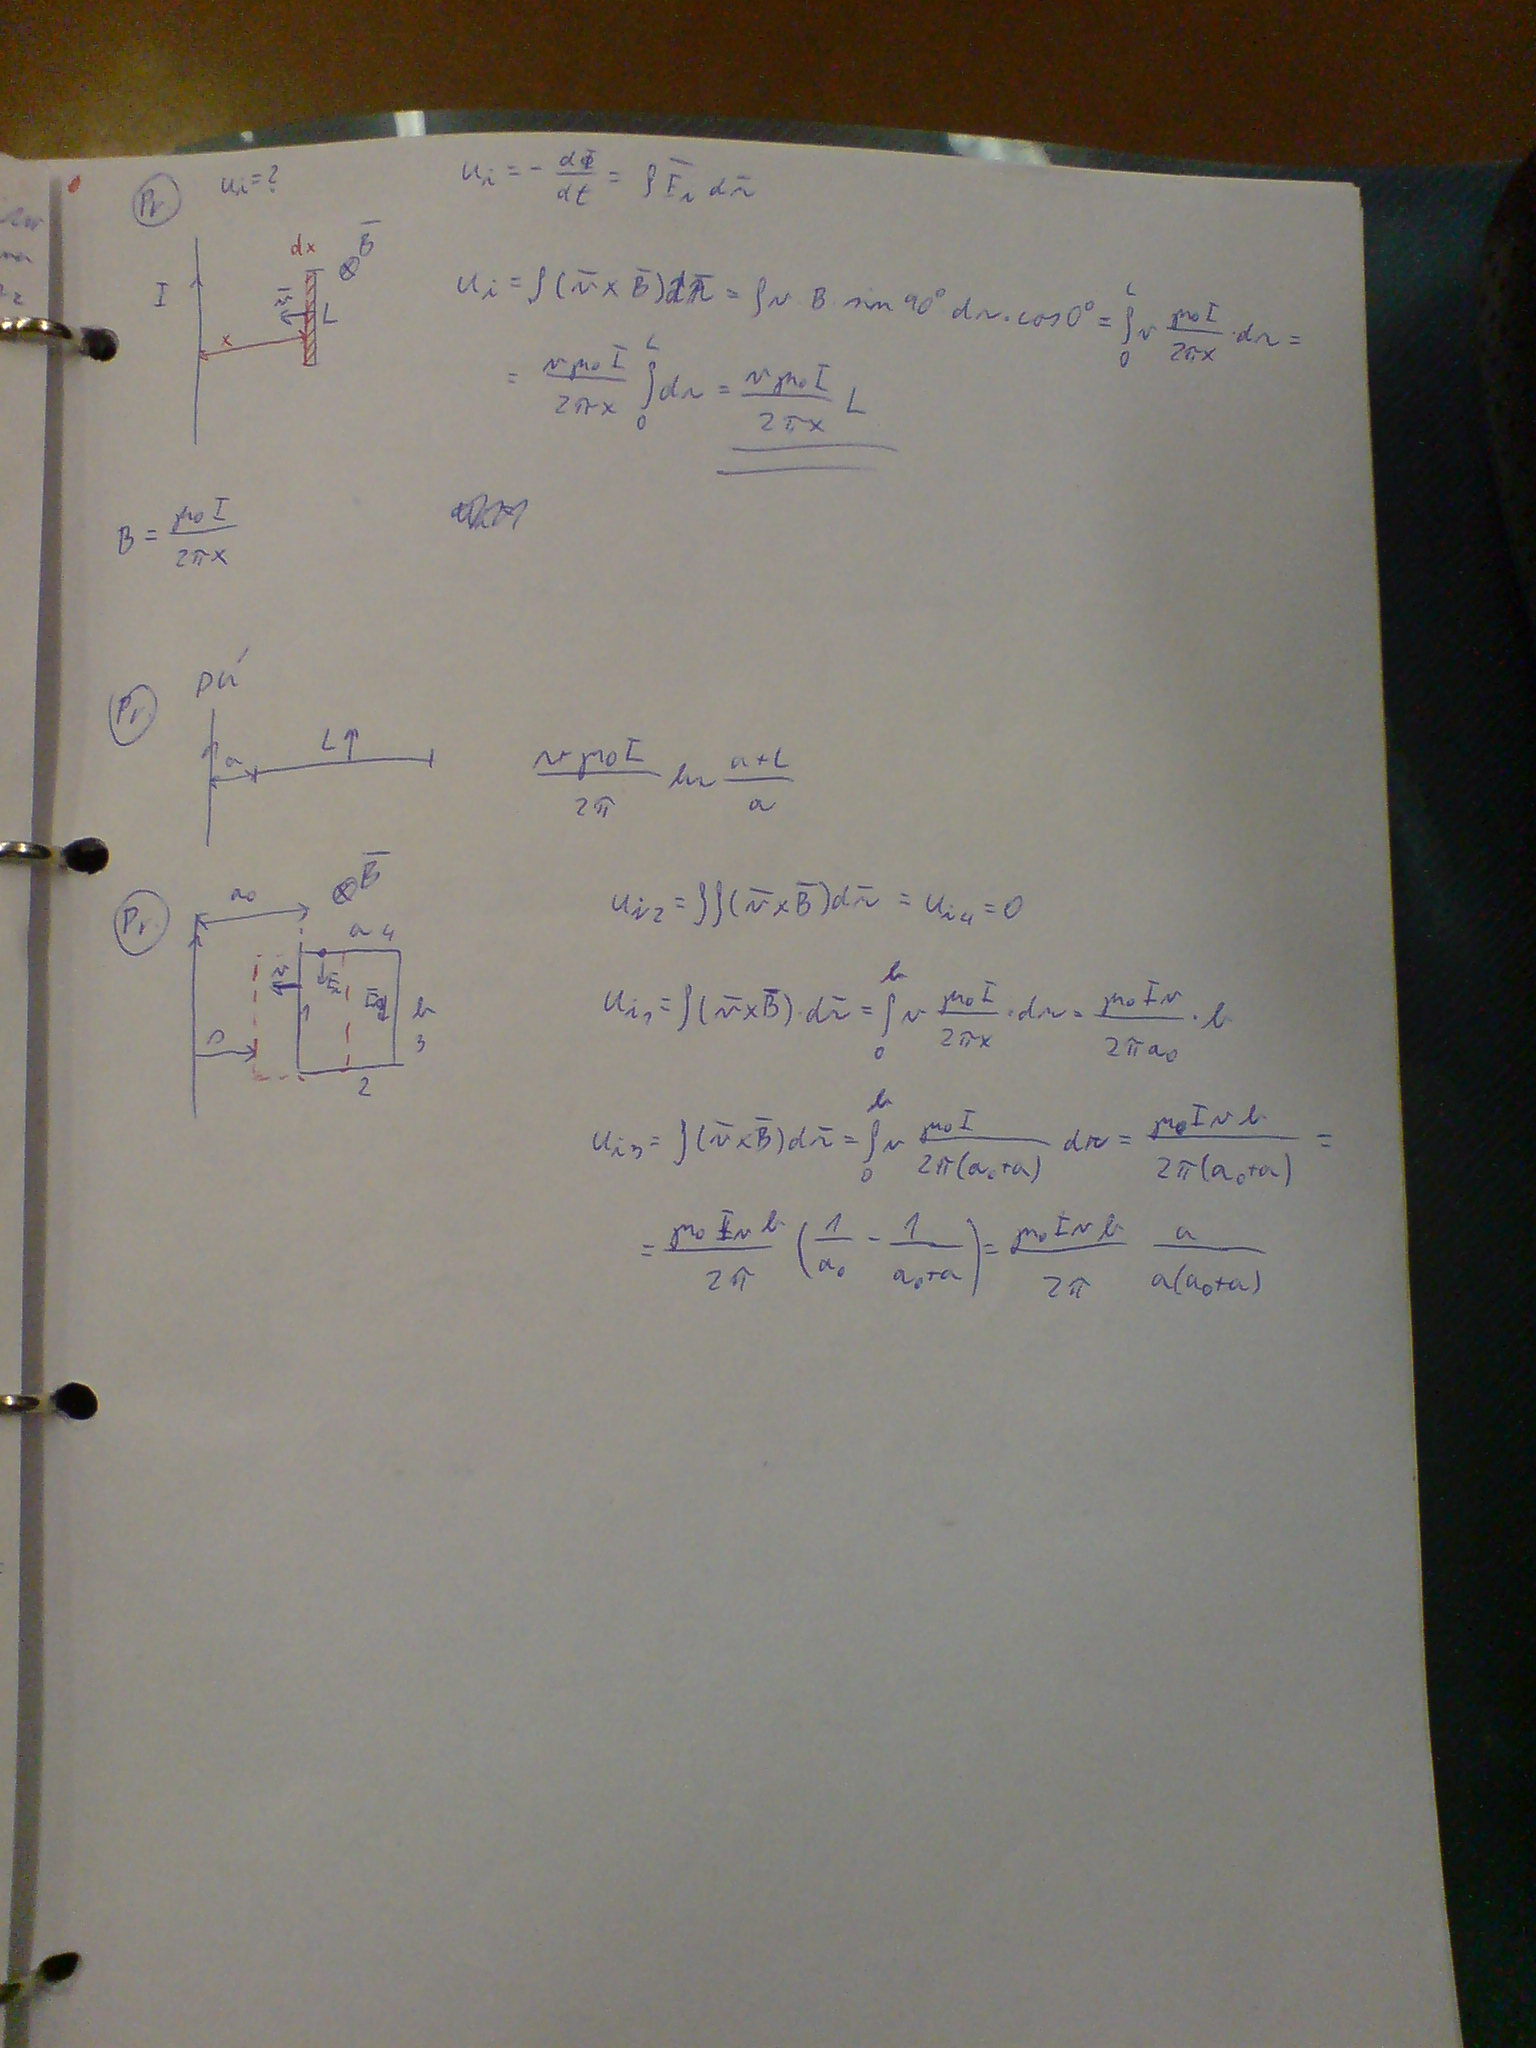 Př. uᵢ = ? uᵢ = - dΦ/dt = ∫ Ēᵢ dr̄
dx B̄
I v̄ L
x
uᵢ = ∫(v̄ × B̄)dr̄ = ∫ v B sin 90° dr · cos 0° = ∫₀ᴸ v μ₀I/2πx · dr =
= vμ₀I/2πx ∫₀ᴸ dr = vμ₀I/2πx L
B = μ₀I/2πx
Př. DÚ
a L
vμ₀I/2π ln (a+L)/a
Př. a₀ B̄
a 4
v̄ 1 b 3
2
uᵢ₂ = ∫∫(v̄ × B̄)dr̄ = uᵢ₄ = 0
uᵢ₁ = ∫(v̄ × B̄)·dr̄ = ∫₀ᵇ v μ₀I/2πx · dr = μ₀Iv/2πa₀ · b
uᵢ₃ = ∫(v̄ × B̄)dr̄ = ∫₀ᵇ v μ₀I/2π(a₀+a) dr = μ₀Ivb/2π(a₀+a) =
= μ₀Ivb/2π (1/a₀ - 1/(a₀+a)) = μ₀Ivb/2π a/a(a₀+a)